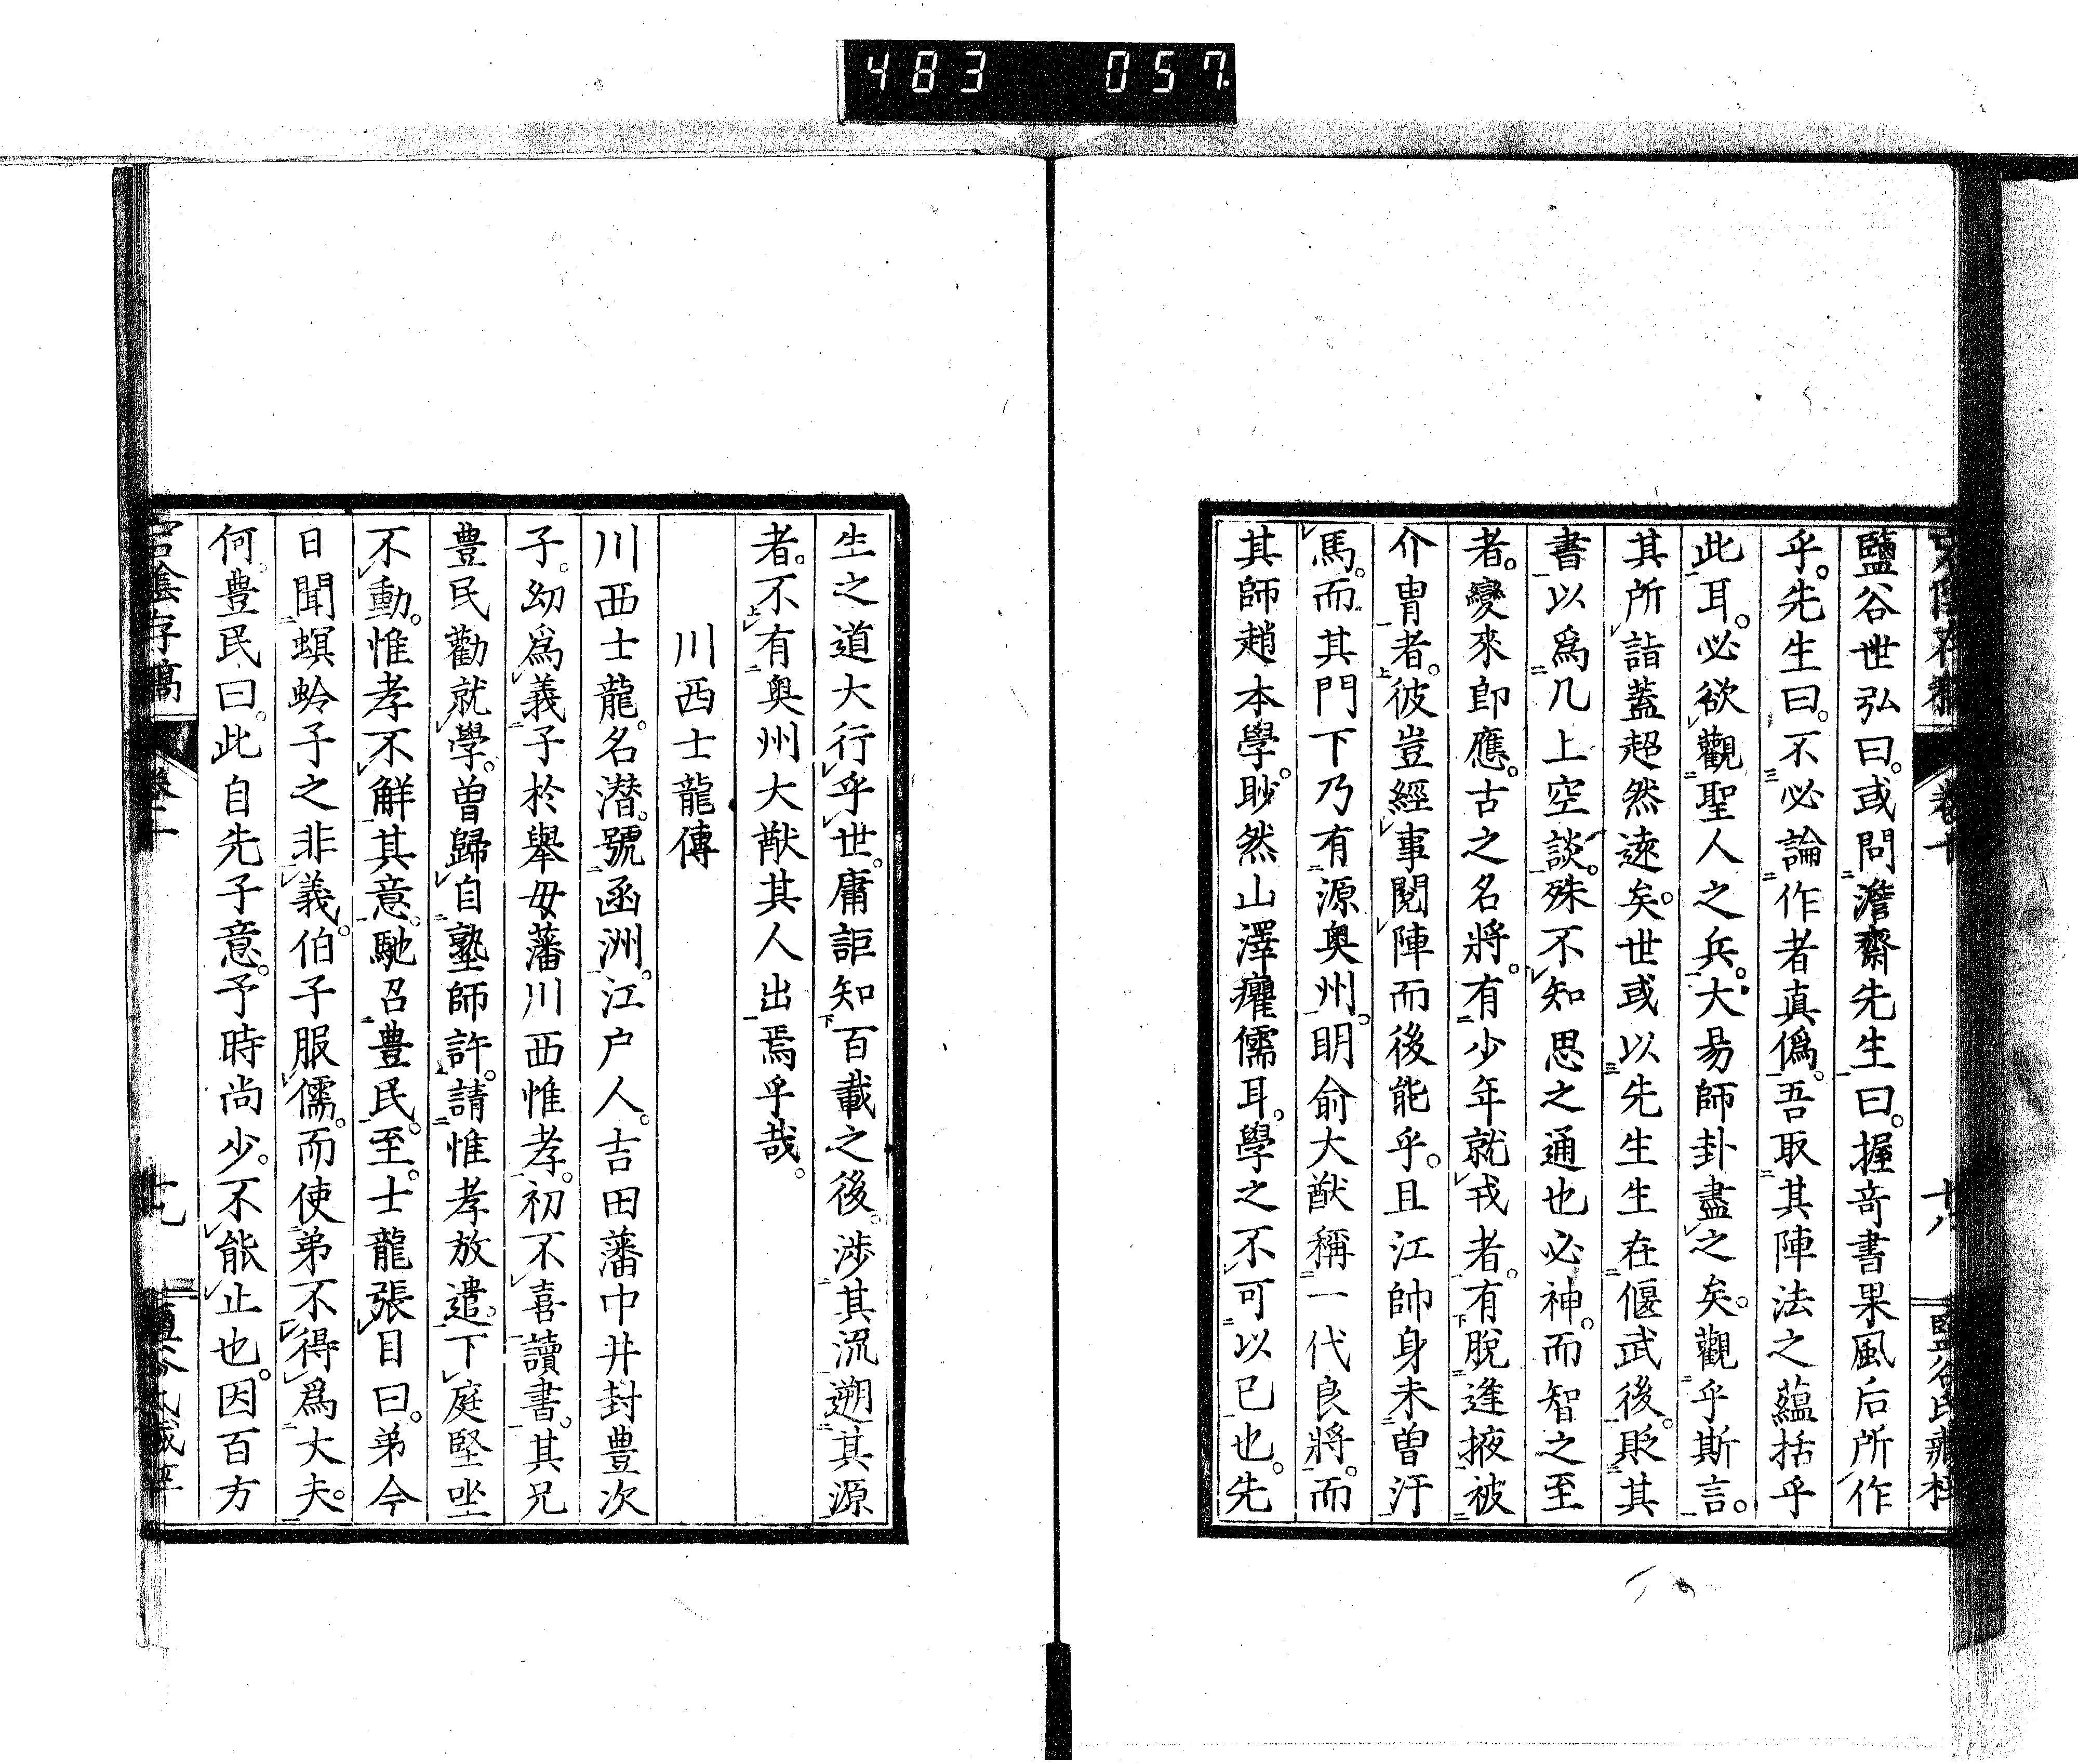 483 057
鹽谷世弘曰。或問澹齋先生曰。握奇書果風后所作
乎。先生曰。不必論作者真僞。吾取其陣法之蘊括乎
此耳。必欲觀聖人之兵。大易師卦盡之矣。觀乎斯言。
其所詣蓋超然遠矣。世或以先生生在偃武後。貶其
書以爲几上空談。殊不知思之通也必神。而智之至
者。變來卽應。古之名將。有少年就戎者。有脫逢掖被
介冑者。彼豈經事閱陣而後能乎。且江帥身未曾汗
馬。而其門下乃有源奥州。明俞大猷稱一代良將。而
其師趙本學。眇然山澤癯儒耳。學之不可以已也。先
生之道大行乎世。庸詎知百載之後。涉其流遡其源
者。不有奥州大猷其人出焉乎哉。
川西士龍傳
川西士龍。名潜。號函洲。江戸人。吉田藩中井封豊次
子。幼爲義子於舉母藩川西惟孝。初不喜讀書。其兄
豊民勸就學。曾歸自塾師許。請惟孝放遣。下庭堅坐
不動。惟孝不觧其意。馳召豊民。至。士龍張目曰。弟今
日聞螟蛉子之非義。伯子服儒。而使弟不得爲大夫。
何。豊民曰。此自先子意。予時尚少。不能止也。因百方